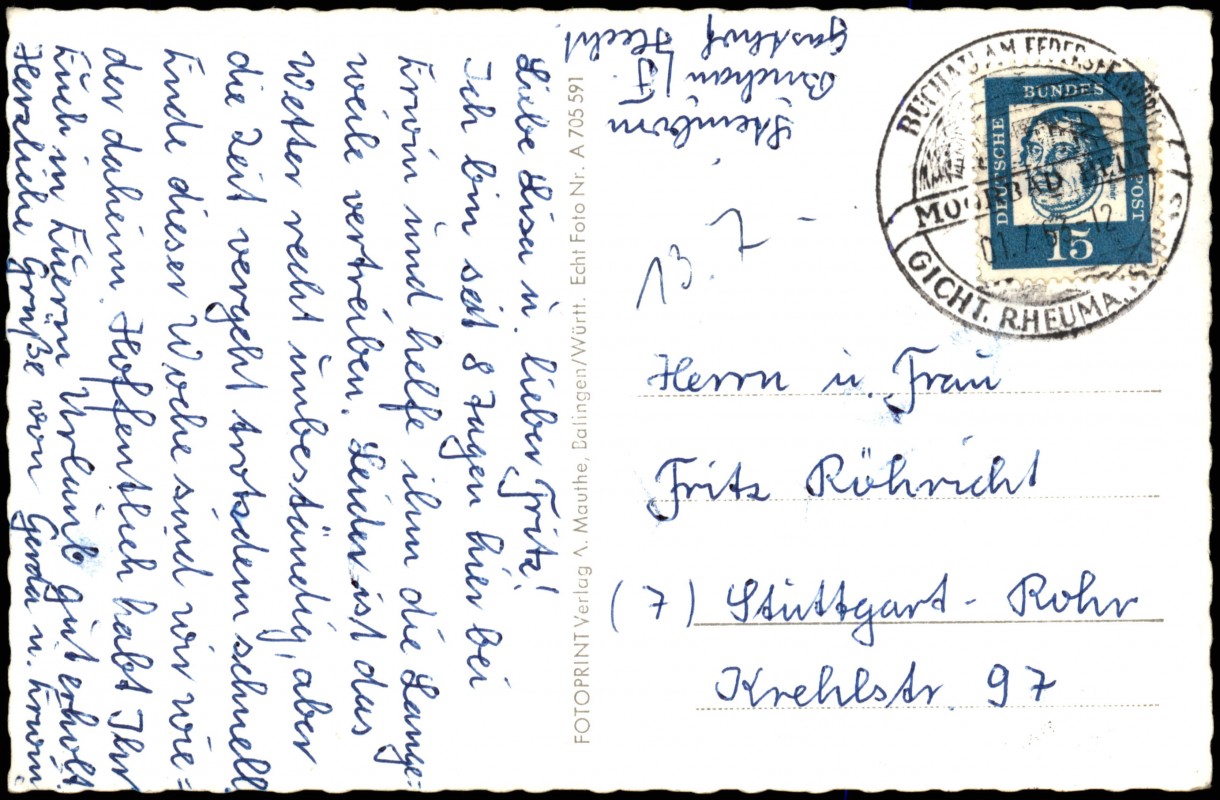 Liebe Lisa u. lieber Fritz!
Ich bin seit 8 Tagen hier bei
Erwin und helfe ihm die Lange=
weile vertreiben. Leider ist das
Wetter recht unbeständig, aber
die Zeit vergeht trotzdem schnell
Ende dieser Woche sind wir wie=
der daheim. Hoffentlich habt Ihr
Euch in Euerm Urlaub gut erholt.
Herzliche Grüße von Gerda u. Erwin
FOTOPRINT Verlag A. Mauthe, Balingen/Württ. Echt Foto Nr. A 705 591
Buchau/F.
Gasthof Hecht
13. 7
BUCHAU AM FEDERSEE
MOORBAD HEILT
01.7.6 -12
GICHT. RHEUMA
DEUTSCHE
BUNDES
POST
15
Herrn u. Frau
Fritz Röhricht
(7) Stuttgart-Rohr
Krehlstr. 97